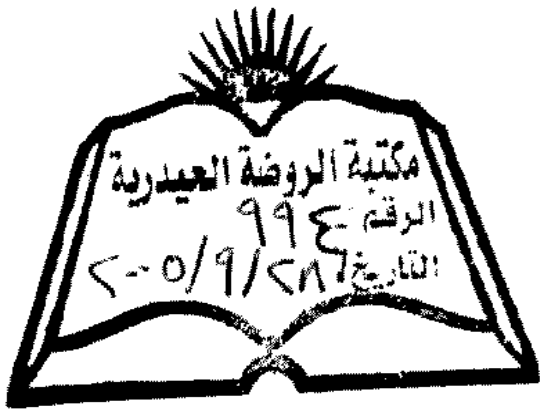 مكتبة الروضة العيدرية
الرقم ٩٩٤
التاريخ ٢٨/٩/٢٠٠٥